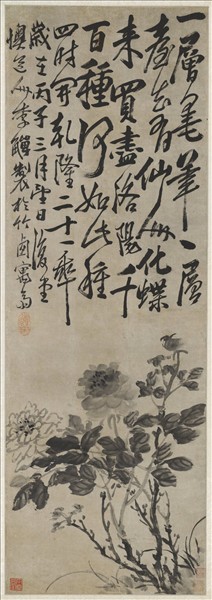 一層毫筆一層
臺也有仙人化蝶
來買盡洛陽千
百種何如此種
四時開乾隆二十一年
歲在丙子三月望日復堂
懊道人李鱓製於竹西寓